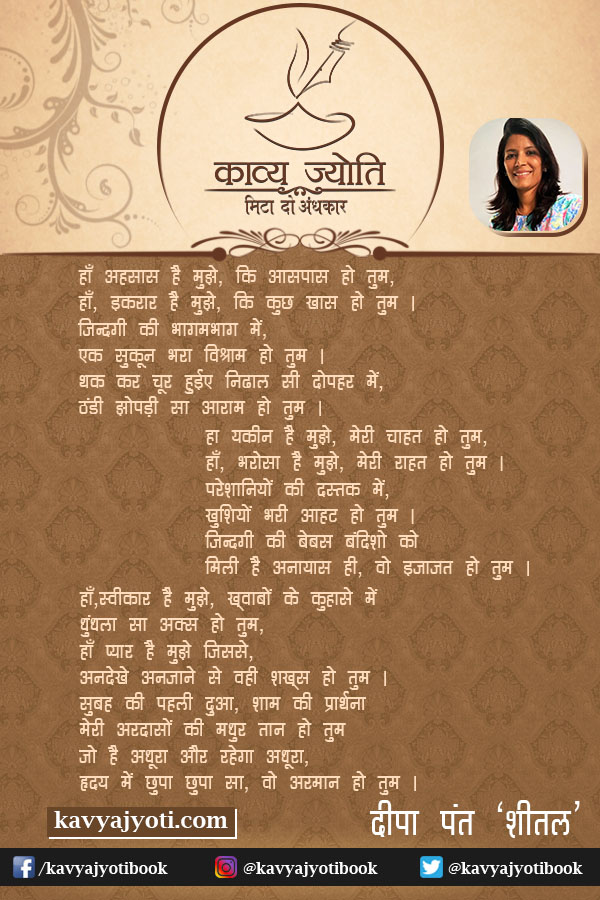 काव्य ज्योति
मिटा दो अंधकार
हाँ अहसास है मुझे, कि आसपास हो तुम,
हाँ, इकरार है मुझे, कि कुछ खास हो तुम |
जिन्दगी की भागमभाग में,
एक सुकून भरा विश्राम हो तुम |
थक कर चूर हुईए निढाल सी दोपहर में,
ठंडी झोपड़ी सा आराम हो तुम |
हा यकीन है मुझे, मेरी चाहत हो तुम,
हाँ, भरोसा है मुझे, मेरी राहत हो तुम |
परेशानियों की दस्तक में,
खुशियों भरी आहट हो तुम |
जिन्दगी की बेबस बंदिशो को
मिली है अनायास ही, वो इजाजत हो तुम |
हाँ,स्वीकार है मुझे, ख्वाबों के कुहासे में
धुंधला सा अक्स हो तुम,
हाँ प्यार है मुझे जिससे,
अनदेखे अनजाने से वही शख्स हो तुम |
सुबह की पहली दुआ, शाम की प्रार्थना
मेरी अरदासों की मधुर तान हो तुम
जो है अधूरा और रहेगा अधूरा,
हृदय में छुपा छुपा सा, वो अरमान हो तुम |
kavyajyoti.com
दीपा पंत ‘शीतल’
/kavyajyotibook
@kavyajyotibook
@kavyajyotibook